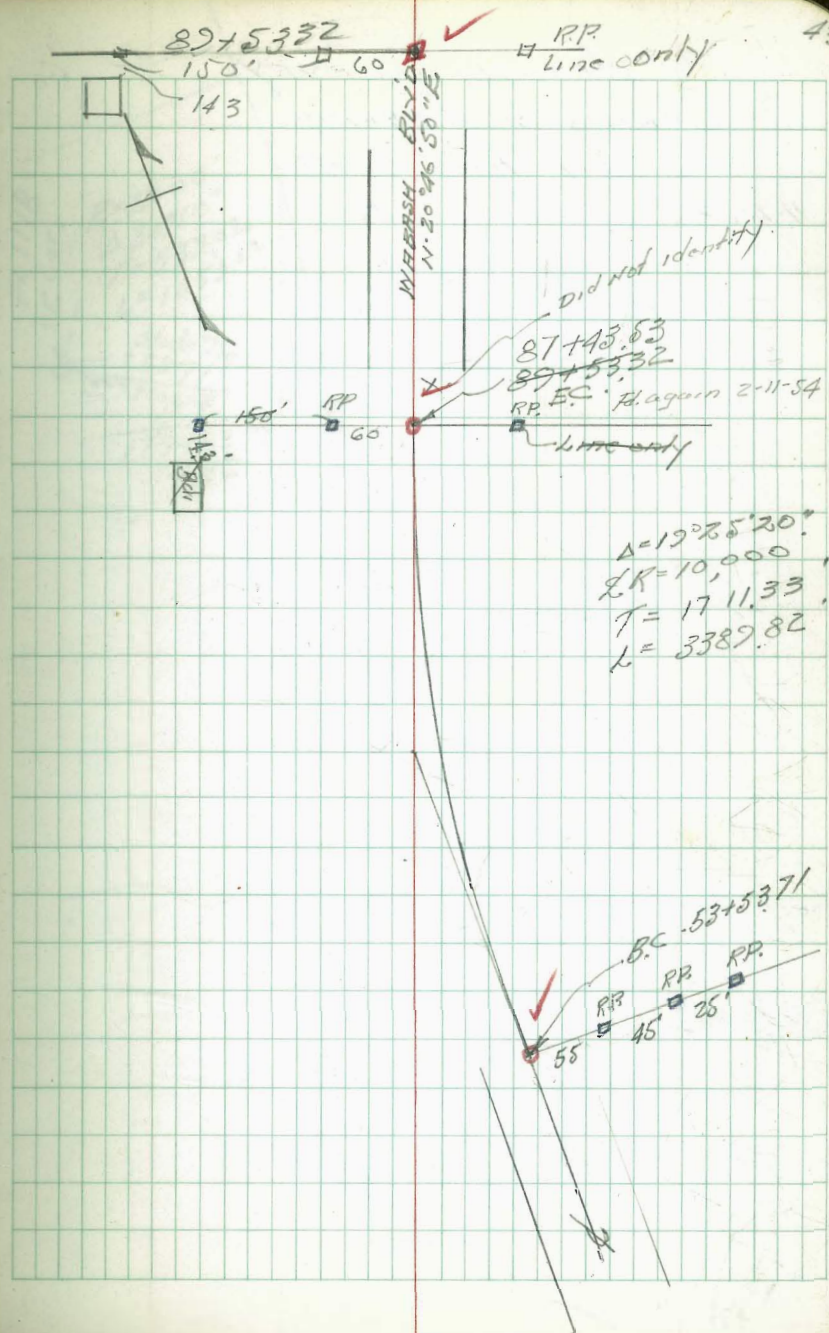 89+53.32
150'
60
R.P.
Line only
143
WABASH BLVD
N. 20° 46' 50" E
Did Not identify
87+43.53
89+53.32
E.C.
Fd. again 2-11-54
150'
RP
60
RP.
Line only
143'
Δ=19°25'20"
R=10,000
T= 1711.33
L= 3389.82
B.C. 53+53.71
RP.
RP.
RP.
55
45'
25'